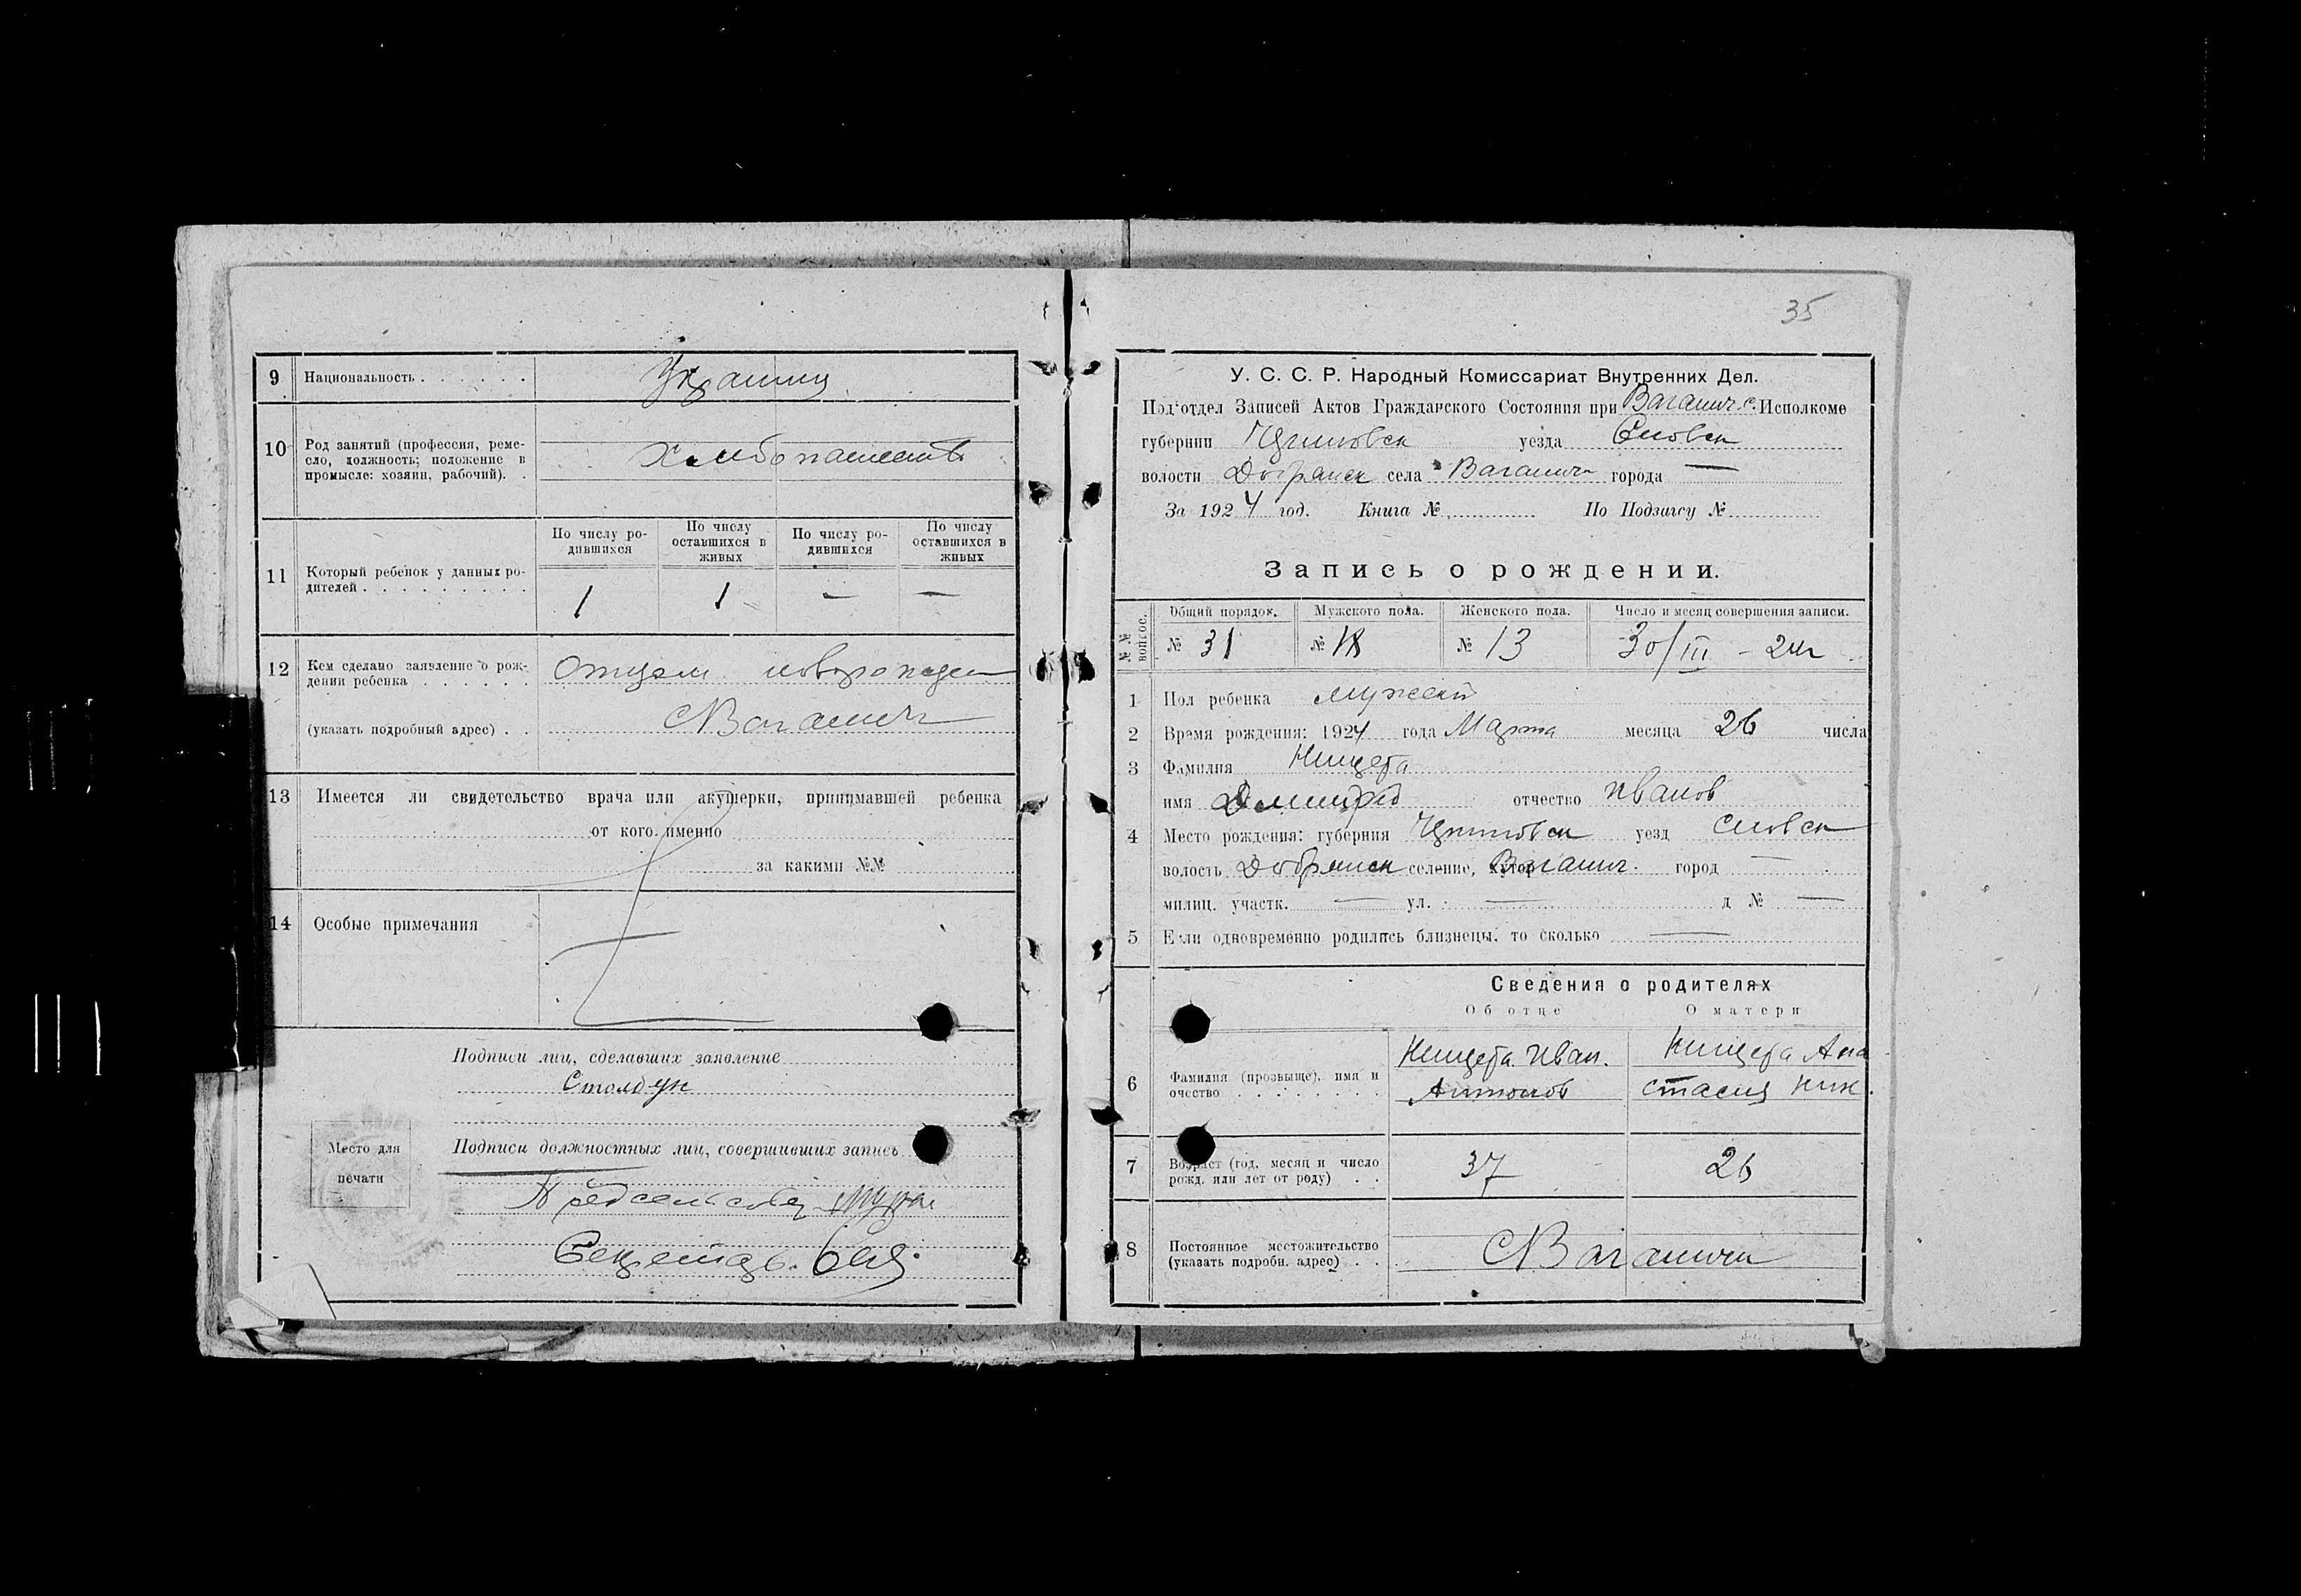 9 Национальность . . . . . . Украинц
10 Род занятий (профессия, реме-
сло, должность; положение в
промысле: хозяин, рабочий). . Хлебопашеств
11 Который ребенок у данных ро-
дителей . . . . . . . . .
По числу ро-
дившихся
По числу
оставшихся в
живых
По числу ро-
дившихся
По числу
оставшихся в
живых
1 1 — —
12 Кем сделано заявление о рож-
дении ребенка . . . . . . Отцом новорожден
(указать подробный адрес) . . с Ваганичи
13 Имеется ли свидетельство врача или акушерки, принимавшей ребенка
от кого именно
за какими №№
14 Особые примечания
Подписи лиц, сделавших заявление
Столбун
Место для
печати
Подписи должностных лиц, совершивших запись
Предсельсовета
Секретарь
35
У. С. С. Р. Народный Комиссариат Внутренних Дел.
Под'отдел Записей Актов Гражданского Состояния при Ваганич. с. Исполкоме
губернии Черниговск уезда Сновск
волости Добрянск села Ваганичи города —
За 1924 год. Книга № По Подзагсу №
Запись о рождении.
№№ вопрос.
Общий порядок. Мужского пола. Женского пола. Число и месяц совершения записи.
№ 31 № 18 № 13 30/III - 24г
1 Пол ребенка мужеск
2 Время рождения: 1924 года Марта месяца 26 числа
3 Фамилия Нищета
имя Дмитрий отчество Иванов
4 Место рождения: губерния Черниговск уезд Сновск
волость Добрянск селение, хутор Ваганич. город —
милиц. участк. — ул. — д № —
5 Если одновременно родились близнецы, то сколько —
Сведения о родителях
Об отце О матери
6 Фамилия (прозвыще), имя и
очество . . . . . . . .
Нищета Иван.
Антонов
Нищета Ана
стасия Ник.
7 Возраст (год, месяц и число
рожд. или лет от роду) . . 37 26
8 Постоянное местожительство
(указать подробн. адрес) . . с Ваганичи